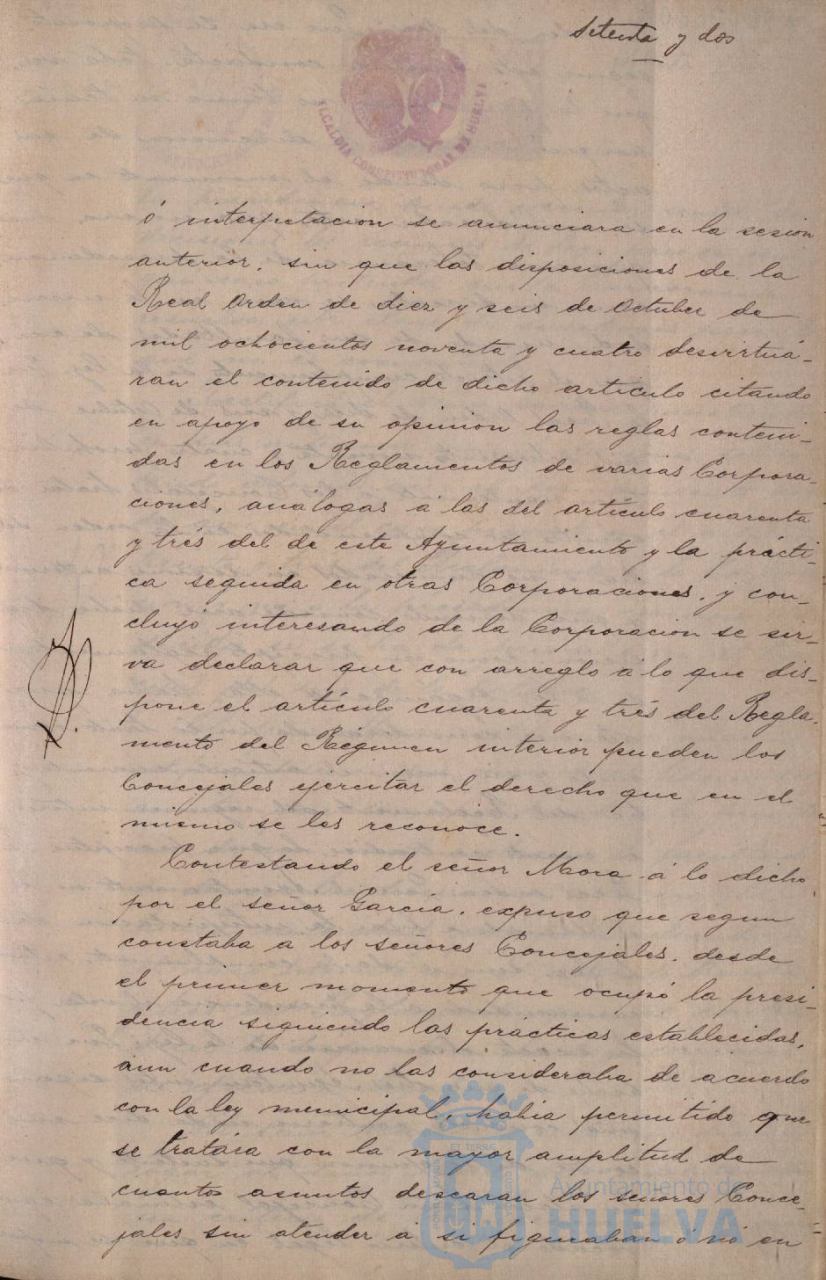 Setenta y dos
ALCALDIA CONSTITUCIONAL DE HUELVA
ó interpretacion se anunciara en la sesion
anterior, sin que las disposiciones de la
Real Orden de diez y seis de Octuber de
mil ochocientos noventa y cuatro desvirtuá-
ran el contenido de dicho artículo citando
en apoyo de su opinion las reglas conteni-
das en los Reglamentos de varias Corpora-
ciones, análogas á las del artículo cuarenta
y trés del de este Ayuntamiento y la prácti-
ca seguida en otras Corporaciones, y con-
cluyó interesando de la Corporacion se sir-
va declarar que con arreglo á lo que dis-
pone el artículo cuarenta y trés del Regla-
mento del Régimen interior pueden los
Concejales ejercitar el derecho que en el
mismo se les reconoce.
Contestando el señor Mora á lo dicho
por el señor García, expuso que segun
constaba a los señores Concejales, desde
el primer momento que ocupó la presi-
dencia siguiendo las prácticas establecidas,
aun cuando no las consideraba de acuerdo
con la ley municipal, habia permitido que
se tratára con la mayor amplitud de
cuantos asuntos desearan los señores Conce-
jales sin atender á si figuraban ó nó en
Ayuntamiento de
HUELVA